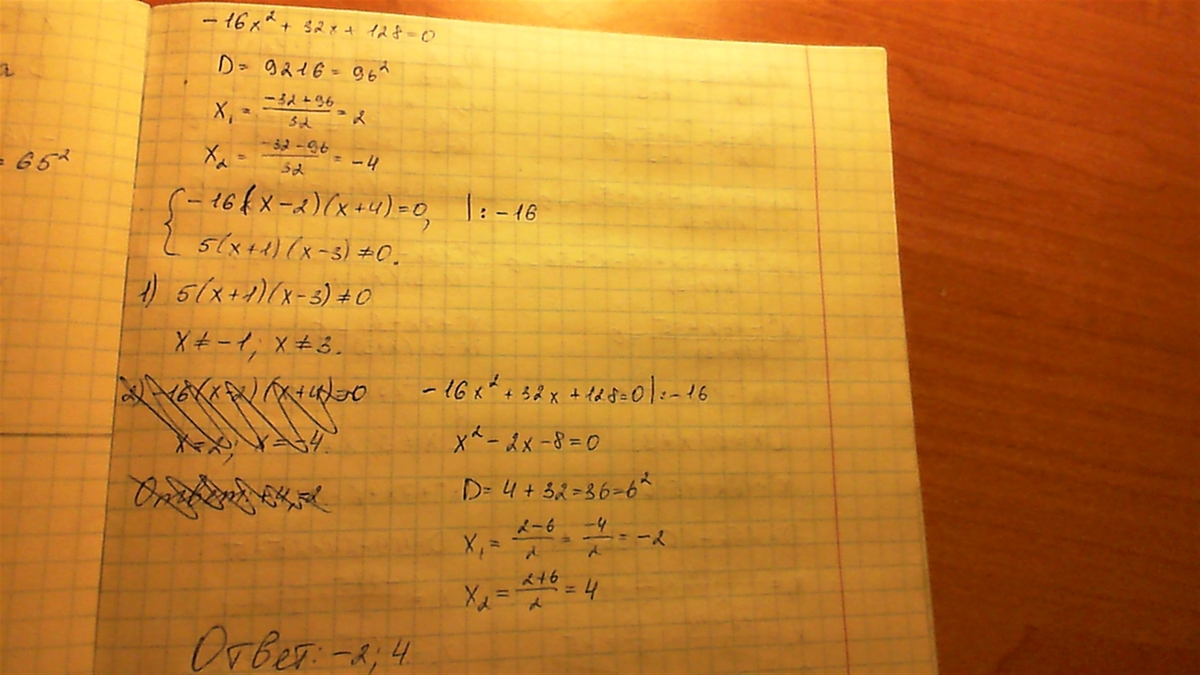 а
= 65²
-16x² + 32x + 128 = 0
D = 9216 = 96²
x₁ = (-32+96)/32 = 2
x₂ = (-32-96)/32 = -4
{ -16(x-2)(x+4)=0, |: -16
5(x+1)(x-3)≠0.
1) 5(x+1)(x-3)≠0
x≠-1; x≠3.
2) -16(x-2)(x+4)=0
x=2; x=-4.
-16x² + 32x + 128 = 0 |: -16
x² - 2x - 8 = 0
D = 4 + 32 = 36 = 6²
x₁ = (2-6)/2 = -4/2 = -2
x₂ = (2+6)/2 = 4
Ответ: -2; 4.